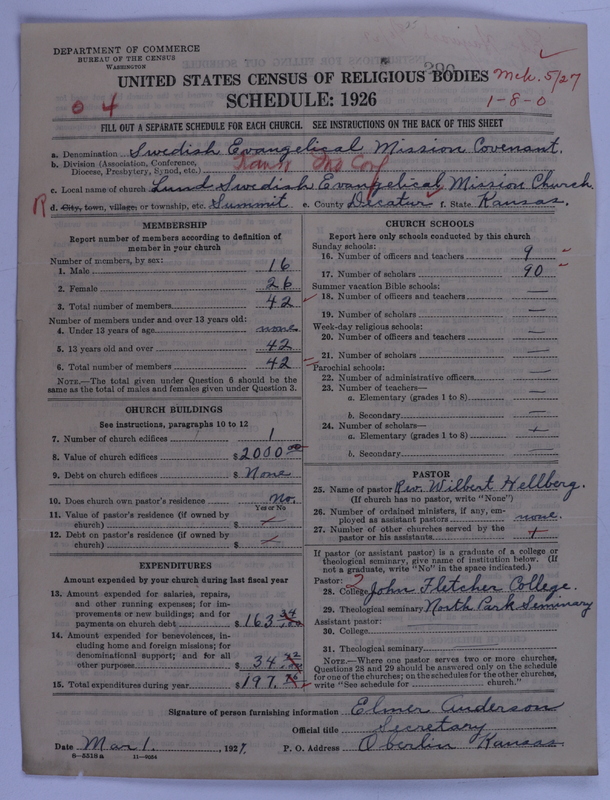 DEPARTMENT OF COMMERCE
BUREAU OF THE CENSUS
WASHINGTON
UNITED STATES CENSUS OF RELIGIOUS BODIES
Mck. 5/27
SCHEDULE: 1926
0 4
1-8-0
FILL OUT A SEPARATE SCHEDULE FOR EACH CHURCH. SEE INSTRUCTIONS ON THE BACK OF THIS SHEET
a. Denomination Swedish Evangelical Mission Covenant.
b. Division (Association, Conference, Diocese, Presbytery, Synod, etc.)
c. Local name of church Lund Swedish Evangelical Mission Church.
R d. City, town, village, or township, etc. Summit e. County Decatur f. State Kansas.
MEMBERSHIP
Report number of members according to definition of
member in your church
Number of members, by sex:
1. Male 16
2. Female 26
3. Total number of members 42
Number of members under and over 13 years old:
4. Under 13 years of age none
5. 13 years old and over 42
6. Total number of members 42
NOTE.—The total given under Question 6 should be the
same as the total of males and females given under Question 3.
CHURCH BUILDINGS
See instructions, paragraphs 10 to 12
7. Number of church edifices 1
8. Value of church edifices $2000 00
9. Debt on church edifices $ None
10. Does church own pastor's residence No.
Yes or No
11. Value of pastor's residence (if owned by
church) $
12. Debt on pastor's residence (if owned by
church) $
EXPENDITURES
Amount expended by your church during last fiscal year
13. Amount expended for salaries, repairs,
and other running expenses; for im-
provements or new buildings; and for
payments on church debt $163.34
14. Amount expended for benevolences, in-
cluding home and foreign missions; for
denominational support; and for all
other purposes $34.42
15. Total expenditures during year $197.76
CHURCH SCHOOLS
Report here only schools conducted by this church
Sunday schools:
16. Number of officers and teachers 9
17. Number of scholars 90
Summer vacation Bible schools:
18. Number of officers and teachers —
19. Number of scholars —
Week-day religious schools:
20. Number of officers and teachers —
21. Number of scholars —
Parochial schools:
22. Number of administrative officers —
23. Number of teachers—
a. Elementary (grades 1 to 8) —
b. Secondary —
24. Number of scholars—
a. Elementary (grades 1 to 8)
b. Secondary —
PASTOR
25. Name of pastor Rev. Wilbert Hellberg.
(If church has no pastor, write "None")
26. Number of ordained ministers, if any, em-
ployed as assistant pastors none.
27. Number of other churches served by the
pastor or his assistants
If pastor (or assistant pastor) is a graduate of a college or
theological seminary, give name of institution below. (If
not a graduate, write "No" in the space indicated.)
Pastor: 2
28. College John Fletcher College.
29. Theological seminary North Park Seminary
Assistant pastor:
30. College
31. Theological seminary
NOTE.—Where one pastor serves two or more churches,
Questions 28 and 29 should be answered only on the schedule
for one of the churches; on the schedules for the other churches,
write "See schedule for church."
Signature of person furnishing information Elmer Anderson
Official title Secretary
Date Mar 1. , 1927. P. O. Address Oberlin Kansas
8—5518a 11—9034